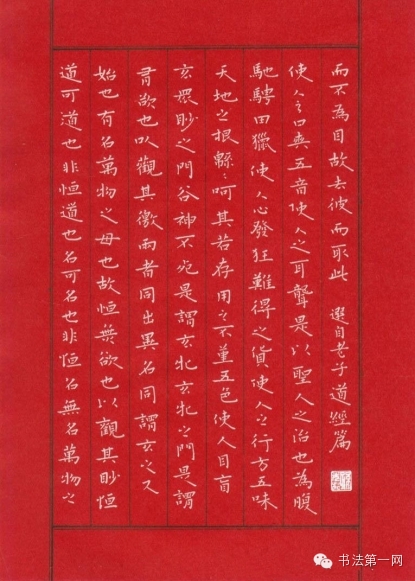 道可道也非恒道也名可名也非恒名無名萬物之
始也有名萬物之母也故恒無欲也以觀其眇恒
有欲也以觀其徼兩者同出異名同謂玄之又
玄眾眇之門谷神不死是謂玄牝玄牝之門是謂
天地之根緜〻呵其若存用之不堇五色使人目盲
馳騁田獵使人心發狂難得之貨使人之行方五味
使人之口爽五音使人之耳聾是以聖人之治也為腹
而不為目故去彼而取此 選自老子道經篇
书法第一网